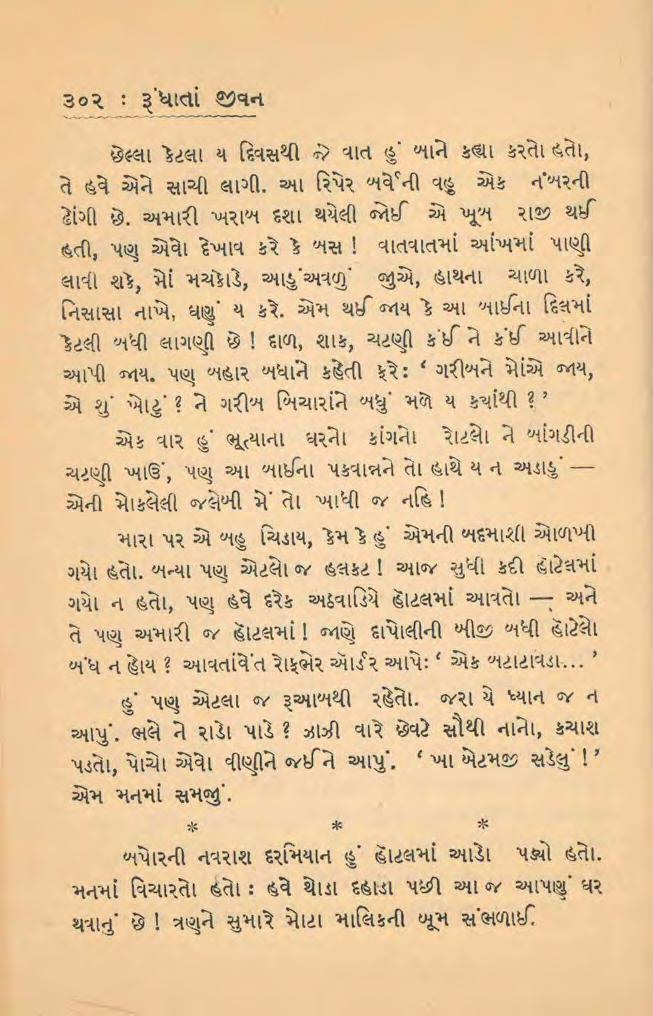 ૩૦૨ : રૂંધાતાં જીવન
છેલ્લા કેટલા ય દિવસથી જે વાત હું બાને કહ્યા કરતો હતો,
તે હવે એને સાચી લાગી. આ રિપેર બર્વેની વહુ એક નંબરની
ઢોંગી છે. અમારી ખરાબ દશા થયેલી જોઈ એ ખૂબ રાજી થઈ
હતી, પણ એવો દેખાવ કરે કે બસ ! વાતવાતમાં આંખમાં પાણી
લાવી શકે, મોં મચકોડે, આડુંઅવળું જુએ, હાથના ચાળા કરે,
નિસાસા નાખે, ઘણું ય કરે. એમ થઈ જાય કે આ બાઈના દિલમાં
કેટલી બધી લાગણી છે ! દાળ, શાક, ચટણી કંઈ ને કંઈ આવીને
આપી જાય. પણ બહાર બધાને કહેતી ફરે : ‘ ગરીબને મોંએ જાય,
એ શું ખોટું ? ને ગરીબ બિચારાંને બધું મળે ય કયાંથી ? ’
એક વાર હું ભૂત્યાના ઘરનો કાંગનો રોટલો ને બાંગડીની
ચટણી ખાઉં, પણ આ બાઈના પકવાન્નને તો હાથે ય ન અડાડું —
એની મોકલેલી જલેબી મેં તો ખાધી જ નહિ !
મારા પર એ બહુ ચિડાય, કેમ કે હું એમની બદમાશી ઓળખી
ગયો હતો. બન્યા પણ એટલો જ હલકટ ! આજ સુધી કદી હૉટેલમાં
ગયો ન હતો, પણ હવે દરેક અઠવાડિયે હૉટલમાં આવતો — અને
તે પણ અમારી જ હૉટલમાં ! જાણે દાપોલીની બીજી બધી હૉટેલો
બંધ ન હોય ? આવતાંવેંત રોફભેર ઑર્ડર આપેઃ ‘ એક બટાટાવડા... ’
હું પણ એટલા જ રૂઆબથી રહેતો. જરા યે ધ્યાન જ ન
આપું. ભલે ને રાડો પાડે ? ઝાઝી વારે છેવટે સૌથી નાનો, કચાશ
પડતો, પોચો એવો વીણીને જઈને આપું. ‘ ખા બેટમજી સડેલું ! ’
એમ મનમાં સમજું.
* * *
બપોરની નવરાશ દરમિયાન હું હૉટલમાં આડો પડ્યો હતો.
મનમાં વિચારતો હતો : હવે થોડા દહાડા પછી આ જ આપણું ઘર
થવાનું છે ! ત્રણને સુમારે મોટા માલિકની બૂમ સંભળાઈ.